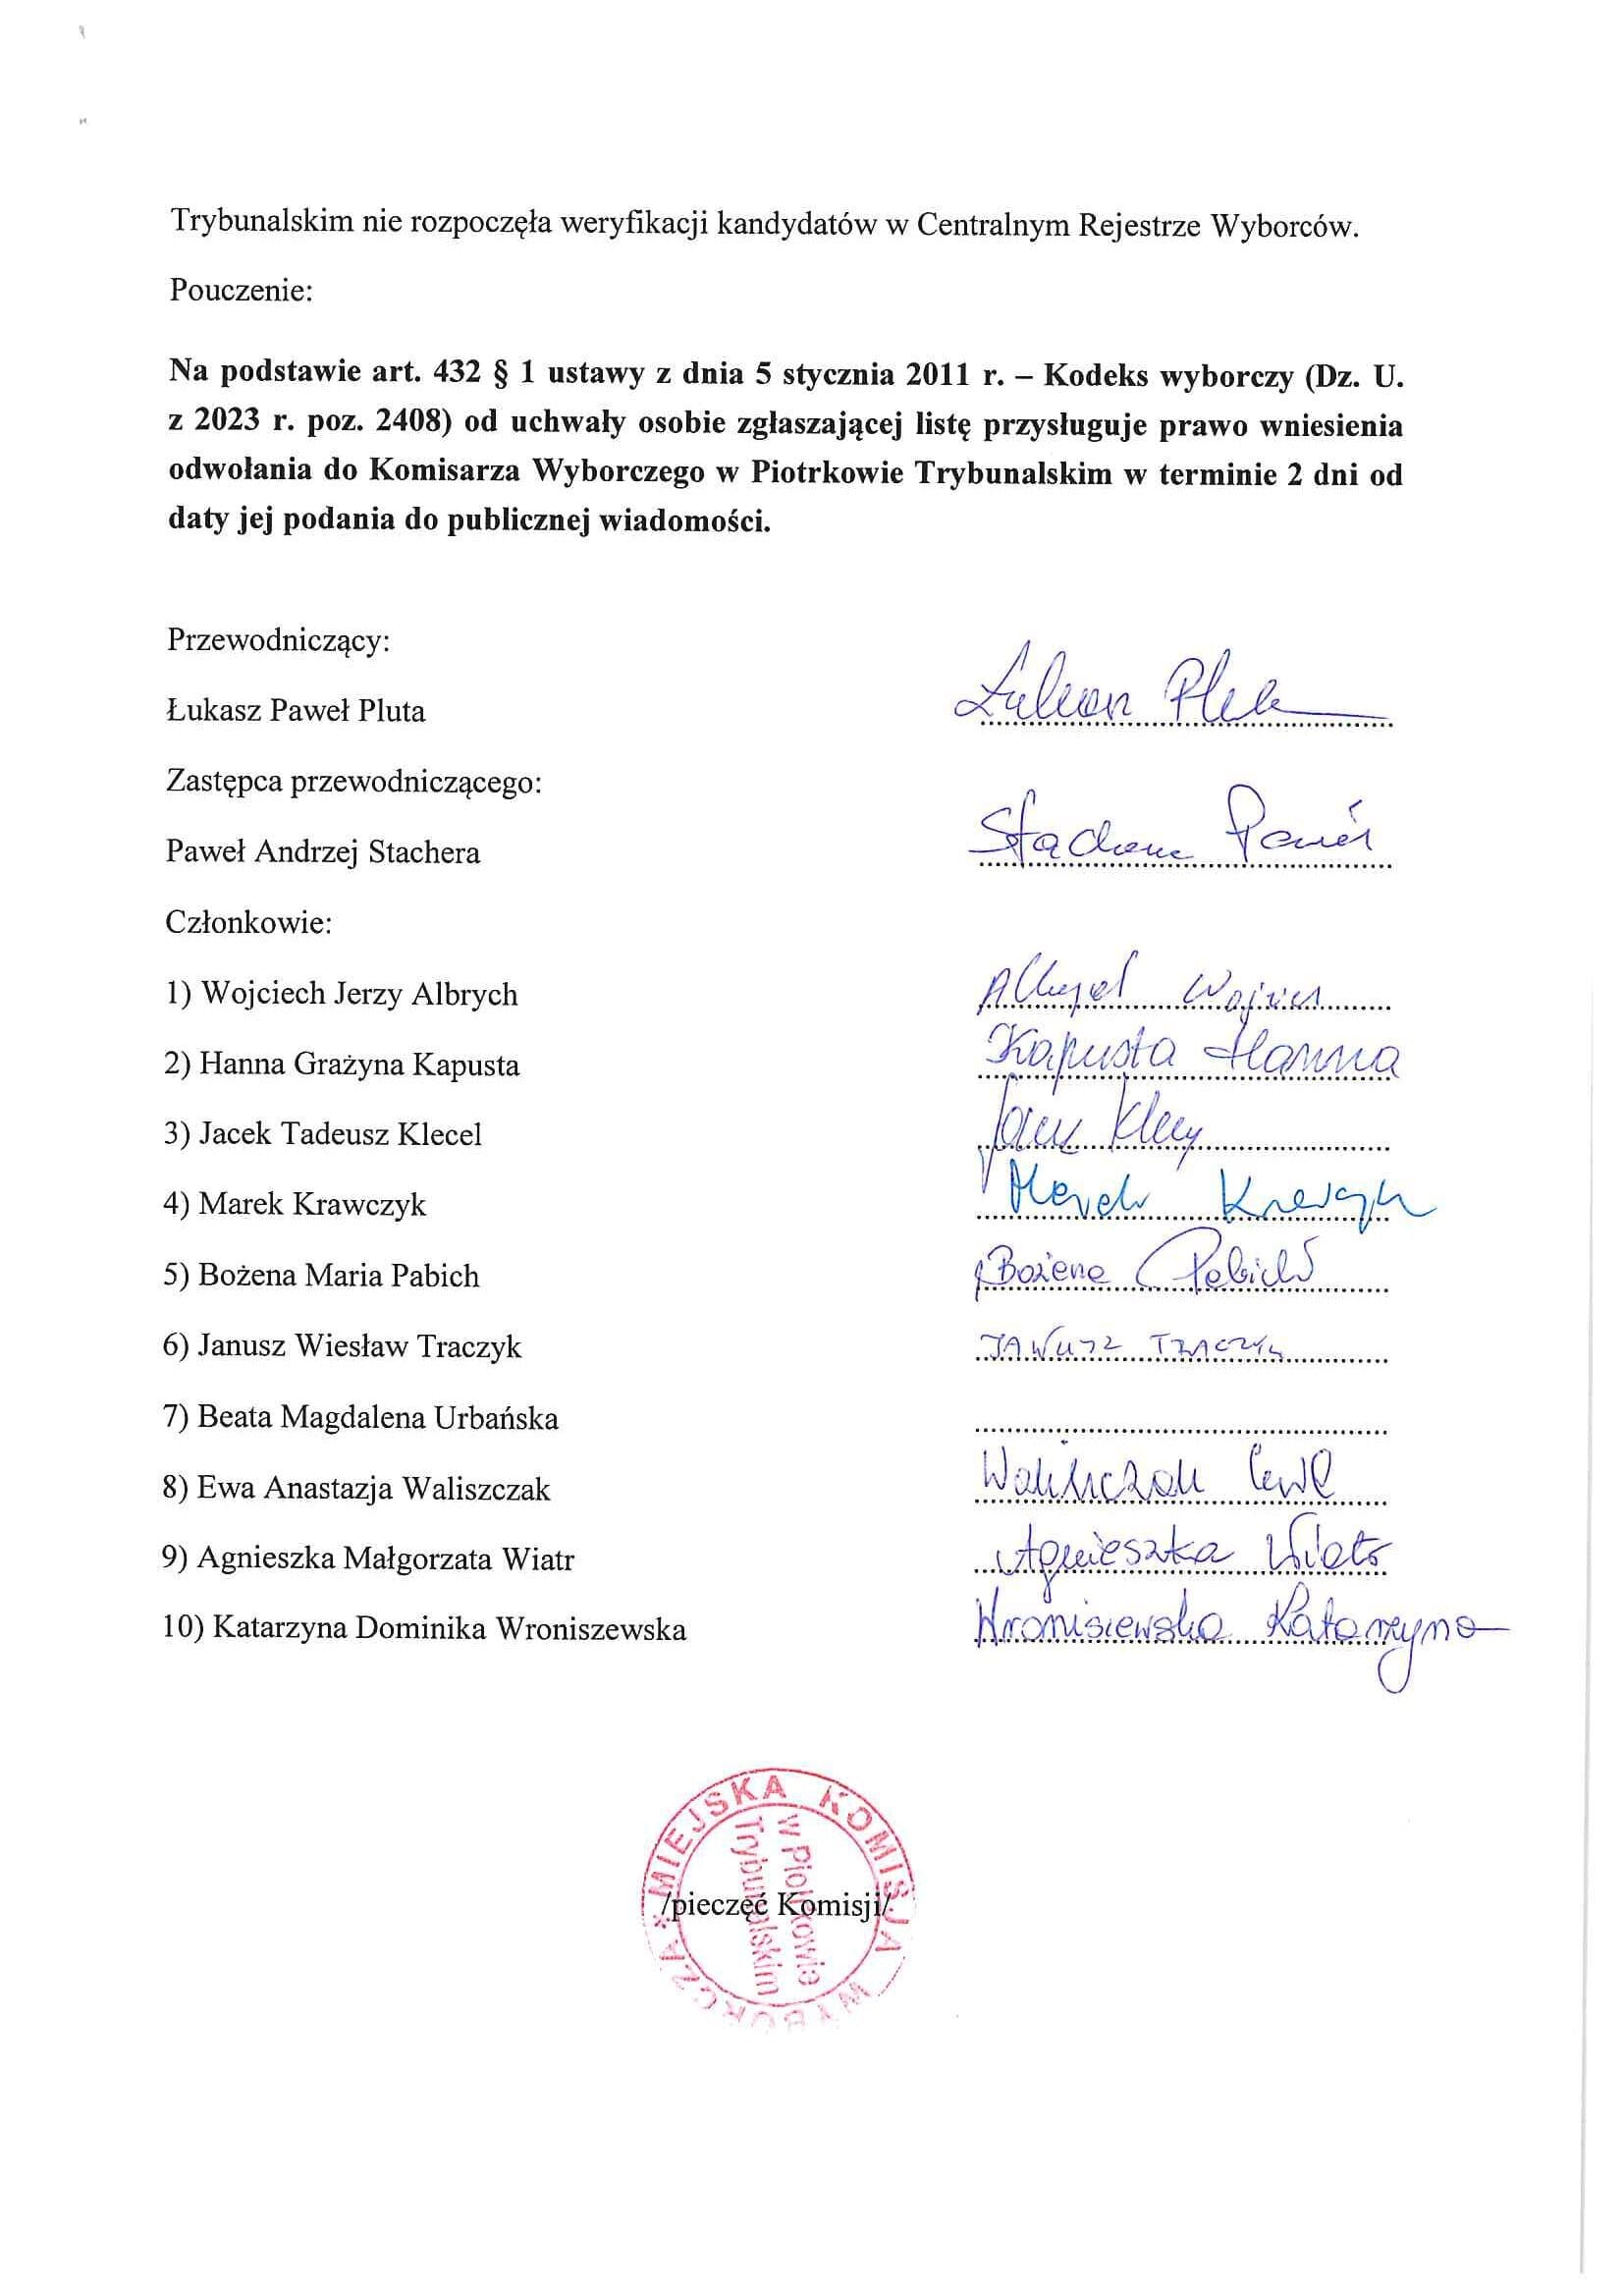 Trybunalskim nie rozpoczęła weryfikacji kandydatów w Centralnym Rejestrze Wyborców.
Pouczenie:
Na podstawie art. 432 § 1 ustawy z dnia 5 stycznia 2011 r. – Kodeks wyborczy (Dz. U.
z 2023 r. poz. 2408) od uchwały osobie zgłaszającej listę przysługuje prawo wniesienia
odwołania do Komisarza Wyborczego w Piotrkowie Trybunalskim w terminie 2 dni od
daty jej podania do publicznej wiadomości.
Przewodniczący:
Łukasz Paweł Pluta
Zastępca przewodniczącego:
Paweł Andrzej Stachera
Członkowie:
1) Wojciech Jerzy Albrych
2) Hanna Grażyna Kapusta Kapusta Hanna
3) Jacek Tadeusz Klecel
4) Marek Krawczyk Marek Krawczyk
5) Bożena Maria Pabich Bożena Pabich
6) Janusz Wiesław Traczyk JANUSZ TRACZYK
7) Beata Magdalena Urbańska
8) Ewa Anastazja Waliszczak Waliszczak Ewa
9) Agnieszka Małgorzata Wiatr Agnieszka Wiatr
10) Katarzyna Dominika Wroniszewska Wroniszewska Katarzyna
MIEJSKA KOMISJA WYBORCZA
w Piotrkowie
Trybunalskim
/pieczęć Komisji/